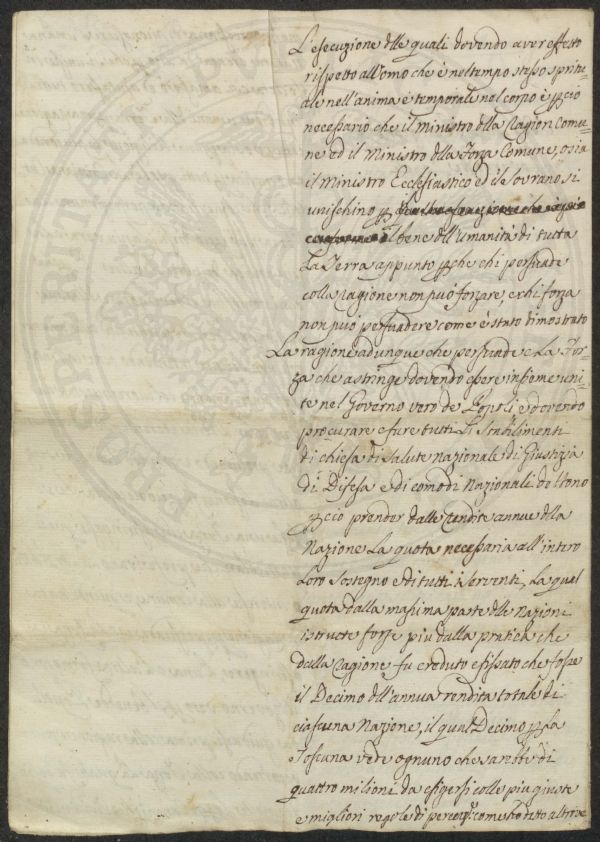 L'esecuzione dlle quali dovendo aver effetto
rispetto all'omo che è nel tempo stesso spiritu
ale nell'anima e temporale nel corpo è pciò
necessario che il Ministro dlla Ragion Comu
ne ed il Ministro dlla Forza Comune, osia
il Ministro Ecclesiastico ed il Sovrano si
unischino p
al bene dll'umanità di tutta
La Terra appunto pche chi persuade
colla ragione non può forzare, e chi forza
non può persuadere come è stato dimostrato
La ragione adunque che persuade e La For
za che astringe dovendo essere insieme uni
te nel Governo vero de Popoli e dovendo
procurare e fare tutti Li Stabilimenti
di chiesa di salute nazionale di Giustizia
di Difesa e di comodi Nazionali devono
pciò prender dalle rendite annue dlla
Nazione La quota necessaria all'intero
Loro sostegno e di tutti i serventi, La qual
quota dalla massima parte dlle Nazioni
istructe forse più dalla pratica che
dalla ragione fu creduto e fissato che fosse
il Decimo dll'annua rendita totale di
ciascuna Nazione, il qual Decimo p La
Toscana vede ognuno che sarebbe di
quattro milioni da esigersi colle più giuste
e migliori regole di percez: come ho detto altrove